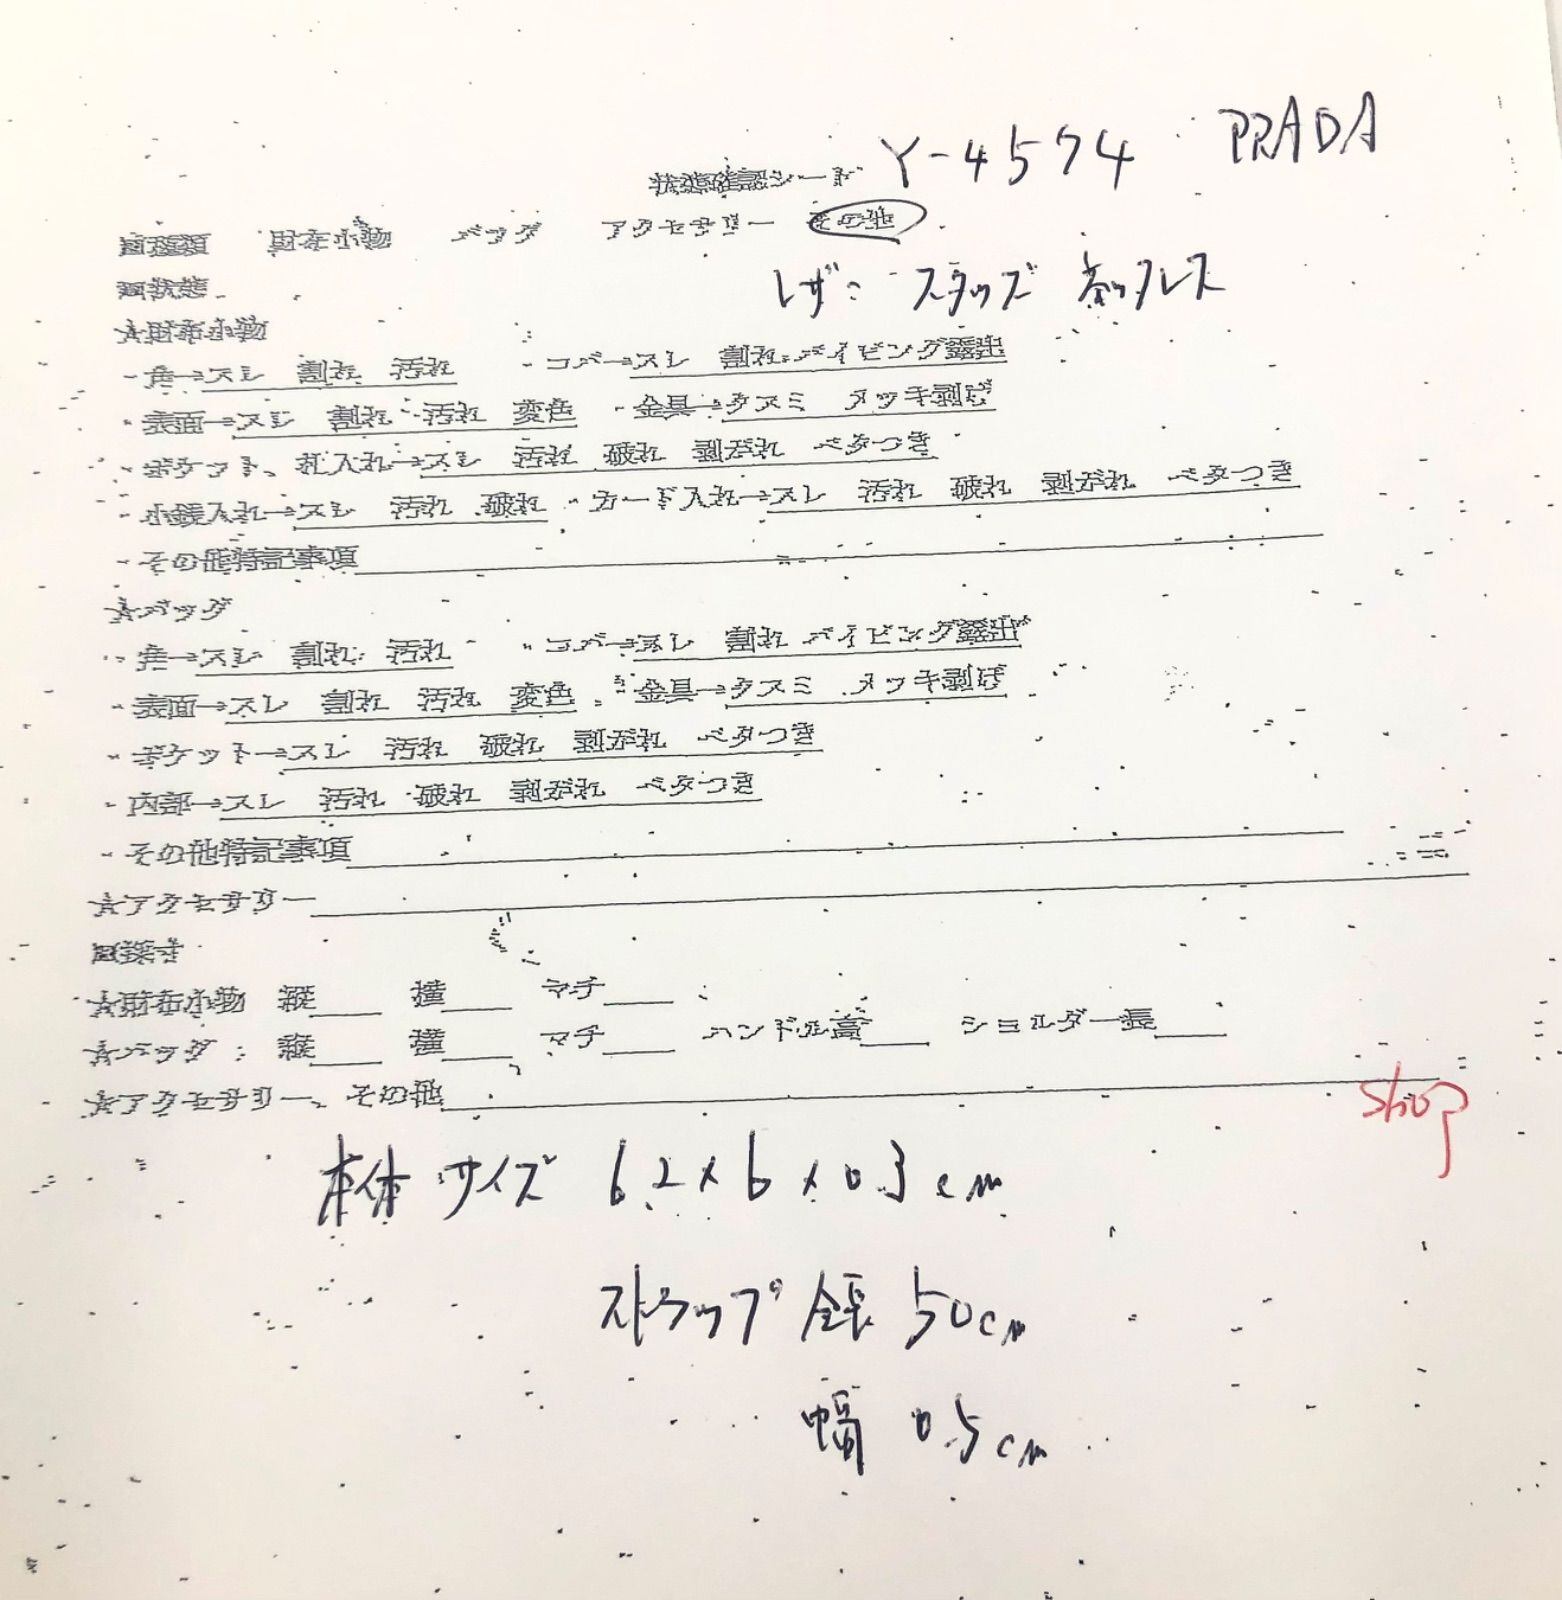 Y-4574 PRADA
状態確認シート
□種類 財布小物 バッグ アクセサリー その他
レザー スタッズ ネックレス
□状態
★財布小物
・角→スレ 割れ 汚れ ・コバ→スレ 割れ パイピング露出
・表面→スレ 割れ 汚れ 変色 ・金具→クスミ メッキ剥げ
・ポケット、札入れ→スレ 汚れ 破れ 剥がれ ベタつき
・小銭入れ→スレ 汚れ 破れ ・カード入れ→スレ 汚れ 破れ 剥がれ ベタつき
・その他特記事項
★バッグ
・角→スレ 割れ 汚れ ・コバ→スレ 割れ パイピング露出
・表面→スレ 割れ 汚れ 変色 ・金具→クスミ メッキ剥げ
・ポケット→スレ 汚れ 破れ 剥がれ ベタつき
・内部→スレ 汚れ 破れ 剥がれ ベタつき
・その他特記事項
★アクセサリー
□採寸
★財布小物 縦 横 マチ
★バッグ 縦 横 マチ ハンドル高 ショルダー長
★アクセサリー、その他
shop
本体サイズ 6.2×6×0.3cm
ストラップ 全長 50cm
幅 0.5cm